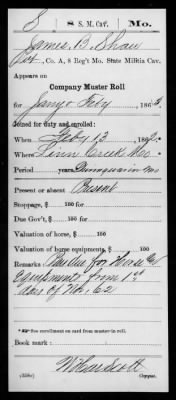 S 8 S. M. Cav. Mo.
James B. Shaw
Pvt, Co. A, 8 Reg't Mo. State Militia Cav.
Appears on
Company Muster Roll
for Jany & Feby, 1863.
Joined for duty and enrolled:
When Feby 13, 1862.
Where Linn Creek Mo
Period years
Present or absent Present
Stoppage, $ 100 for
Due Gov't, $ 100 for
Valuation of horse, $ 100
Valuation of horse equipments, $ 100
Remarks: for Horse &
Equipments from 1st
days of Nov, 62
*See enrollment on card from muster-in roll.
Book mark:
Scott
(358c) Copyist.